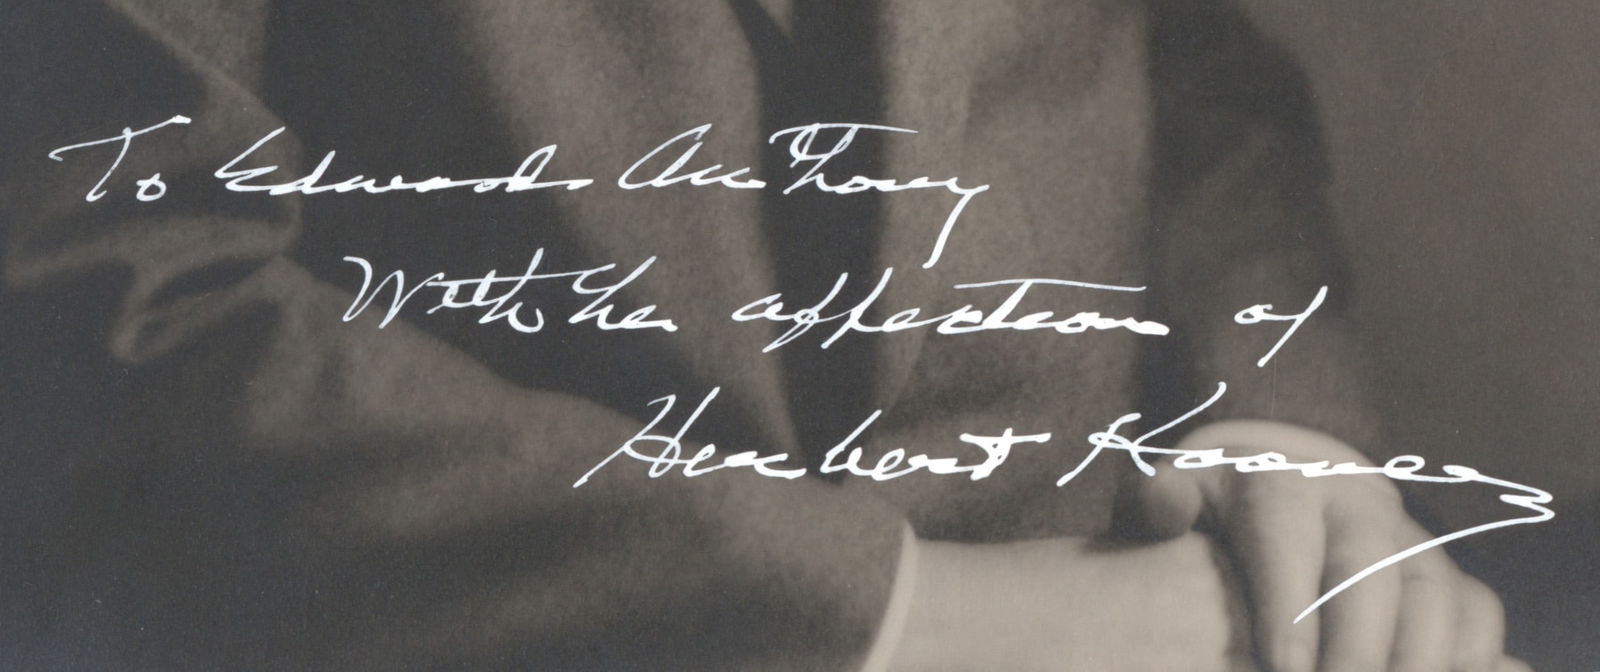 To Edward Anthony
With the affection of
Herbert Hoover